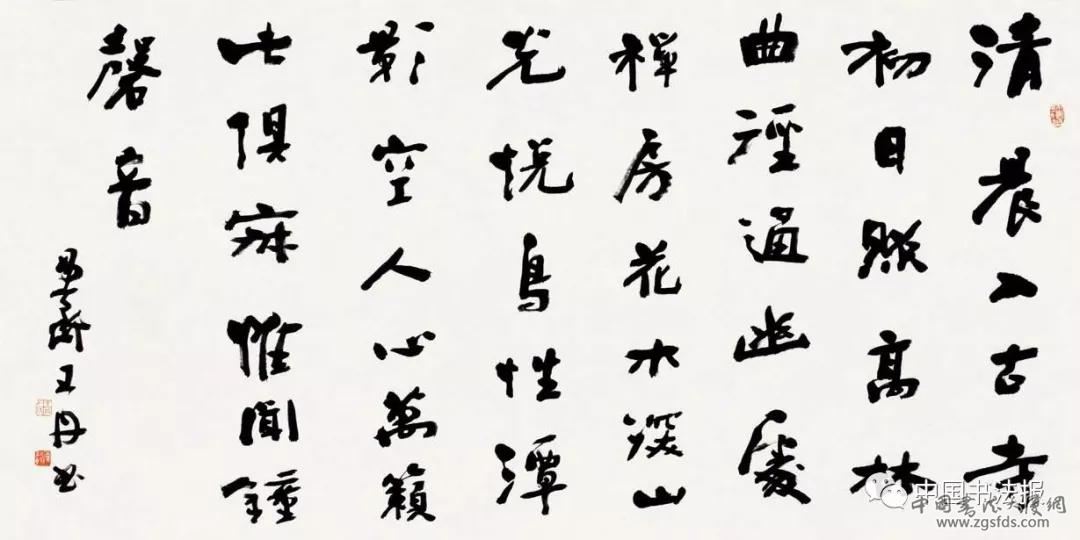 清晨入古寺
初日照高林
曲徑通幽處
禪房花木深山
光悦鳥性潭
影空人心萬籟
此俱寂惟聞鐘
磬音
易齋王丹書
中国书法报
中国书法大厦網
www.zgsfds.com